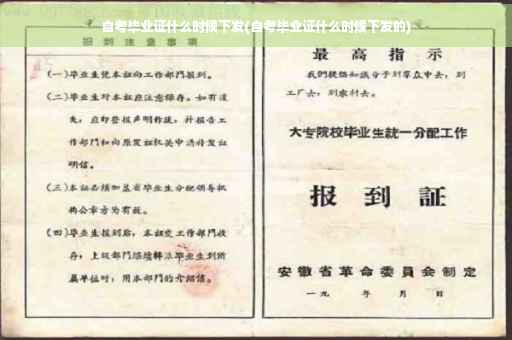 自考毕业证什么时候下发(自考毕业证什么时候下发的)
报到注意事项
(一)毕业生凭本证向工作部门报到。
(二)毕业生对本证应注意保存。如有遗
失,应即登报声明作废,并报告工
作部门和向原发证机关申请补发证
明信。
(三)本证必须加盖省毕业生分配领导机
构公章方为有效。
(四)毕业生报到后,本证交工作部门收
存;上级部门继续转派毕业生到所
属单位时,用本部门的介绍信。
最高指示
我们提倡知识分子到群众中去,到
工厂去,到农村去。
大专院校毕业生统一分配工作
报到証
安徽省革命委員会制定
一九 年 月 日